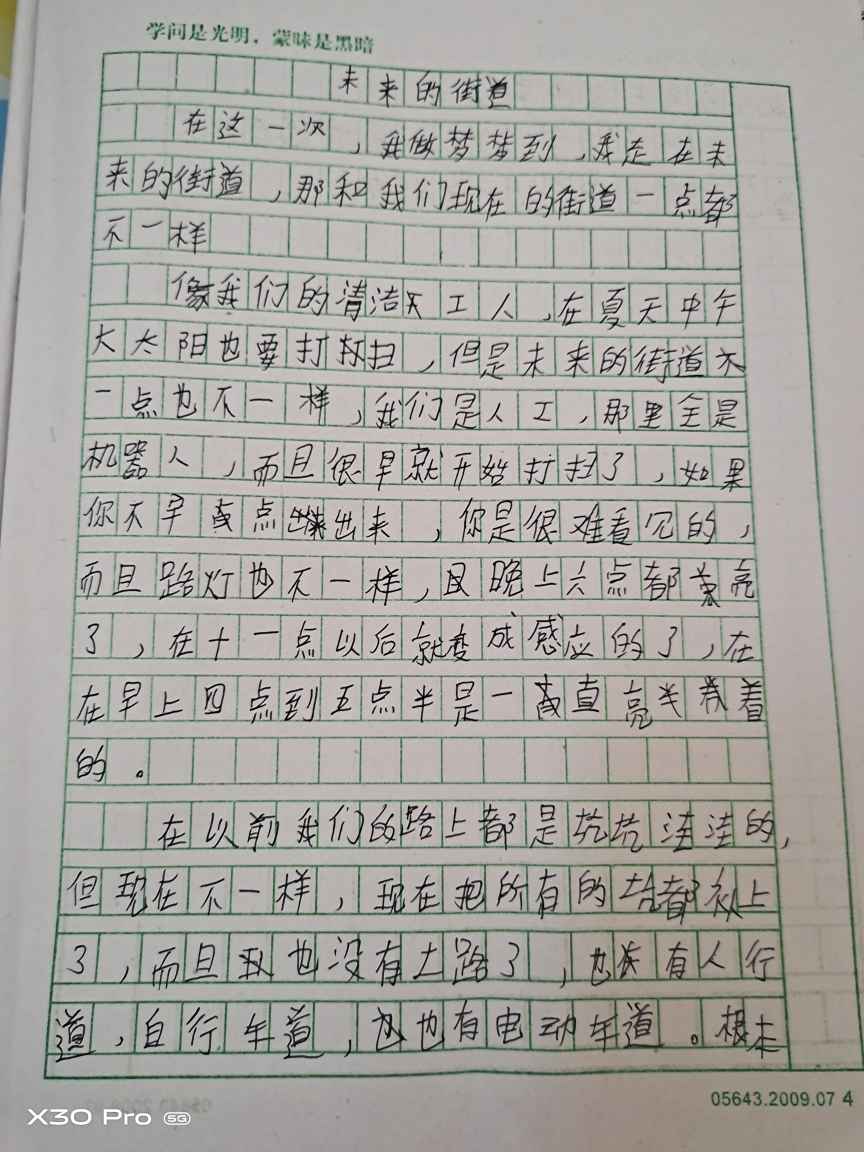 学问是光明，蒙昧是黑暗
未来的街道
在这一次，我做梦梦到，我走在未
来的街道，那和我们现在的街道一点都
不一样
像我们的清洁工人，在夏天中午
大太阳也要打扫，但是未来的街道
一点也不一样，我们是人工，那里全是
机器人，而且很早就开始打扫了，如果
你不早点出来，你是很难看见的，
而且路灯也不一样，晚上六点都亮
了，在十一点以后就变成感应的了，在
在早上四点到五点半是一直亮着
的。
在以前我们的路上都是坑坑洼洼的，
但现在不一样，现在把所有的坑都补上
了，而且也没有土路了，也有人行
道，自行车道，也有电动车道。根本
05643.2009.07 4
X30 Pro 5G